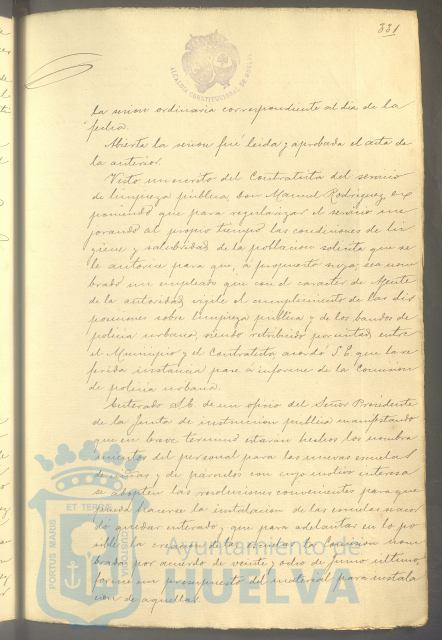 331
ALCALDIA CONSTITUCIONAL DE HUELVA
la sesion ordinaria correspondiente al dia de la
fecha.
Abierta la sesion fué leida y aprobada el acta de
la anterior.
Visto un escrito del Contratista del servicio
de limpieza pública, Don Manuel Rodriguez, ex
poniendo que para regularizar el servicio me
jorando al propio tiempo las condiciones de hi
giene y salubridad de la poblacion solicita que se
le autorice para que, á propuesta suya, sea nom
brado un empleado que con el caracter de Agente
de la autoridad, vigile el cumplimiento de las dis
posiciones sobre limpieza pública y de los bandos de
policia urbana, siendo retribuido por mitad entre
el Municipio y el Contratista, acordó S. E. que la re
ferida instancia pase á informe de la Comision
de policia urbana.
Enterado S.E. de un oficio del Señor Presidente
de la Junta de instruccion pública manifestando
que en breve término estarán hechos los nombra
mientos del personal para las nuevas escuelas
de niñas y de párvulos con cuyo motivo interesa
se adopten las resoluciones convenientes para que
pueda hacerse la instalacion de las escuelas, acor
dó quedar enterado, y que para adelantar en lo po
sible la creacion de las escuelas la Comision nom
brada por acuerdo de veinte y ocho de Junio último,
forme un presupuesto del material para instala
cion de aquellas.
PORTUS MARIS
ET TERRAE
CUSTODIA
Ayuntamiento de
HUELVA